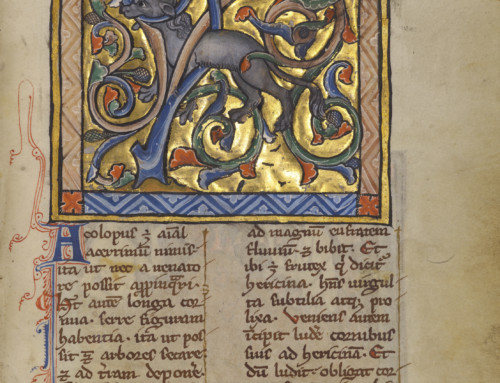 Acolopus ÷ aīal
acerrimum nimis
ita ut nec a uenato
re possit appinqͥri.
Ht autē longa cor
nua. serre figuram
habentia. ita ut pos
sit ⁊ arbores secare
⁊ ad t̄ram depone
ad magnum eufratem
fluuium. ⁊ bibit. Et
ibi ÷ frutex qͥ dicit᷑
hericina. hn̄s uirgul
ta subtilia atqꝫ pro
lixa. Veniens autem
īcipit luđe cornibus
suis ad hericinā. Et
dū ludit. obligat cor